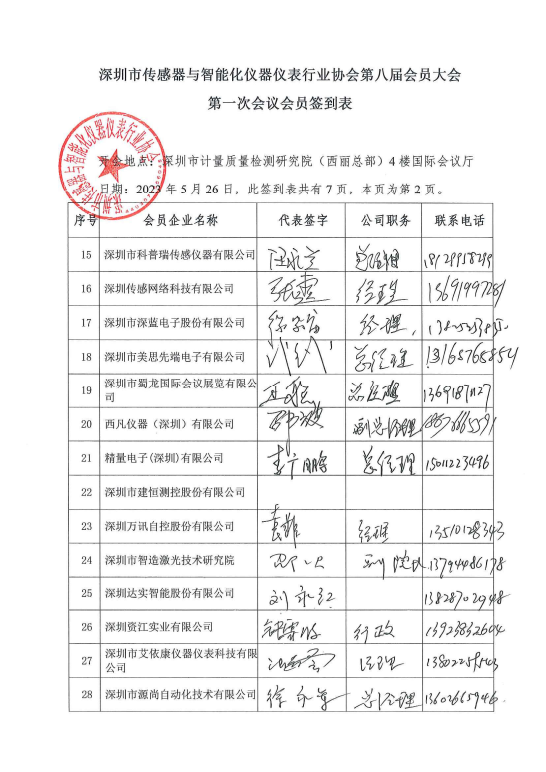 深圳市传感器与智能化仪器仪表行业协会第八届会员大会
第一次会议会员签到表
开会地点：深圳市计量质量检测研究院（西丽总部）4楼国际会议厅
日期：2023 年 5 月 26 日，此签到表共有 7 页，本页为第 2 页。
序号 会员企业名称 代表签字 公司职务 联系电话
15 深圳市科普瑞传感仪器有限公司 总经理 18129958299
16 深圳传感网络科技有限公司 张雪 经理
17 深圳市深蓝电子股份有限公司 经理
18 深圳市美思先端电子有限公司 总经理 13165765854
19 深圳市蜀龙国际会议展览有限公
司 总经理 13691871127
20 西凡仪器（深圳）有限公司 副总经理
21 精量电子(深圳)有限公司 李广鹏 总经理 15011223496
22 深圳市建恒测控股份有限公司
23 深圳万讯自控股份有限公司 袁雄 经理 13510128343
24 深圳市智造激光技术研究院 副院长 13794486178
25 深圳达实智能股份有限公司 刘永红 13828702948
26 深圳资江实业有限公司 行政 13923832604
27 深圳市艾依康仪器仪表科技有限
公司 经理
28 深圳市源尚自动化技术有限公司 总经理 13602665946